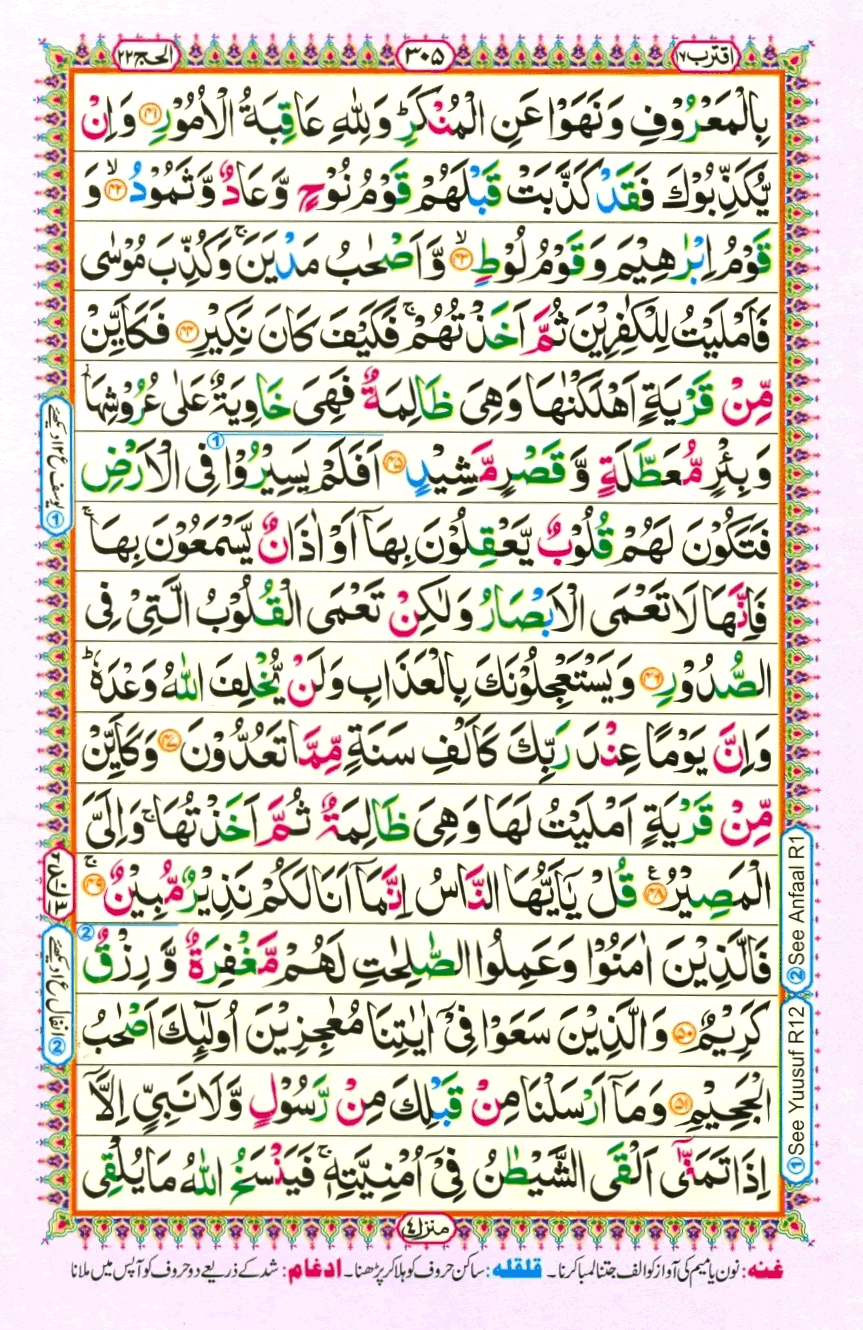 اقترب ۱۷
۳۰۵
الحج ۲۲
بِالْمَعْرُوْفِ وَنَهَوْا عَنِ الْمُنْكَرِ ؕ وَلِلّٰهِ عَاقِبَةُ الْاُمُوْرِ ﴿۴۱﴾ وَاِنْ
يُّكَذِّبُوْكَ فَقَدْ كَذَّبَتْ قَبْلَهُمْ قَوْمُ نُوْحٍ وَّعَادٌ وَّثَمُوْدُ ﴿ۙ۴۲﴾ وَ
قَوْمُ اِبْرٰهِيْمَ وَقَوْمُ لُوْطٍ ﴿ۙ۴۳﴾ وَّاَصْحٰبُ مَدْيَنَ ۚ وَكُذِّبَ مُوْسٰى
فَاَمْلَيْتُ لِلْكٰفِرِيْنَ ثُمَّ اَخَذْتُهُمْ ۚ فَكَيْفَ كَانَ نَكِيْرِ ﴿۴۴﴾ فَكَاَيِّنْ
مِّنْ قَرْيَةٍ اَهْلَكْنٰهَا وَهِىَ ظَالِمَةٌ فَهِىَ خَاوِيَةٌ عَلٰى عُرُوْشِهَا
وَبِئْرٍ مُّعَطَّلَةٍ وَّقَصْرٍ مَّشِيْدٍ ﴿۴۵﴾ اَفَلَمْ يَسِيْرُوْا فِى الْاَرْضِ
①
فَتَكُوْنَ لَهُمْ قُلُوْبٌ يَّعْقِلُوْنَ بِهَاۤ اَوْ اٰذَانٌ يَّسْمَعُوْنَ بِهَا ۚ
فَاِنَّهَا لَا تَعْمَى الْاَبْصَارُ وَلٰكِنْ تَعْمَى الْقُلُوْبُ الَّتِىْ فِى
الصُّدُوْرِ ﴿۴۶﴾ وَيَسْتَعْجِلُوْنَكَ بِالْعَذَابِ وَلَنْ يُّخْلِفَ اللّٰهُ وَعْدَهٗ ؕ
وَاِنَّ يَوْمًا عِنْدَ رَبِّكَ كَاَلْفِ سَنَةٍ مِّمَّا تَعُدُّوْنَ ﴿۴۷﴾ وَكَاَيِّنْ
مِّنْ قَرْيَةٍ اَمْلَيْتُ لَهَا وَهِىَ ظَالِمَةٌ ثُمَّ اَخَذْتُهَا ۚ وَاِلَىَّ
الْمَصِيْرُ ﴿۴۸﴾ قُلْ يٰۤاَيُّهَا النَّاسُ اِنَّمَاۤ اَنَا لَكُمْ نَذِيْرٌ مُّبِيْنٌ ﴿ۚ۴۹﴾
②
فَالَّذِيْنَ اٰمَنُوْا وَعَمِلُوا الصّٰلِحٰتِ لَهُمْ مَّغْفِرَةٌ وَّ رِزْقٌ
كَرِيْمٌ ﴿۵۰﴾ وَالَّذِيْنَ سَعَوْا فِىْۤ اٰيٰتِنَا مُعٰجِزِيْنَ اُولٰٓئِكَ اَصْحٰبُ
الْجَحِيْمِ ﴿۵۱﴾ وَمَاۤ اَرْسَلْنَا مِنْ قَبْلِكَ مِنْ رَّسُوْلٍ وَّلَا نَبِىٍّ اِلَّاۤ
اِذَا تَمَنّٰىۤ اَلْقَى الشَّيْطٰنُ فِىْۤ اُمْنِيَّتِهٖ ۚ فَيَنْسَخُ اللّٰهُ مَا يُلْقِى
① یوسف ع ۱۲ دیکھئے
② انفال ع ۱ دیکھئے
② See Anfaal R1
① See Yuusuf R12
منزل ۴
غنه: نون یا میم کی آواز کو الف جتنا لمبا کرنا۔ قلقله: ساکن حروف کو ہلا کر پڑھنا۔ ادغام: شد کے ذریعے دو حروف کو آپس میں ملانا